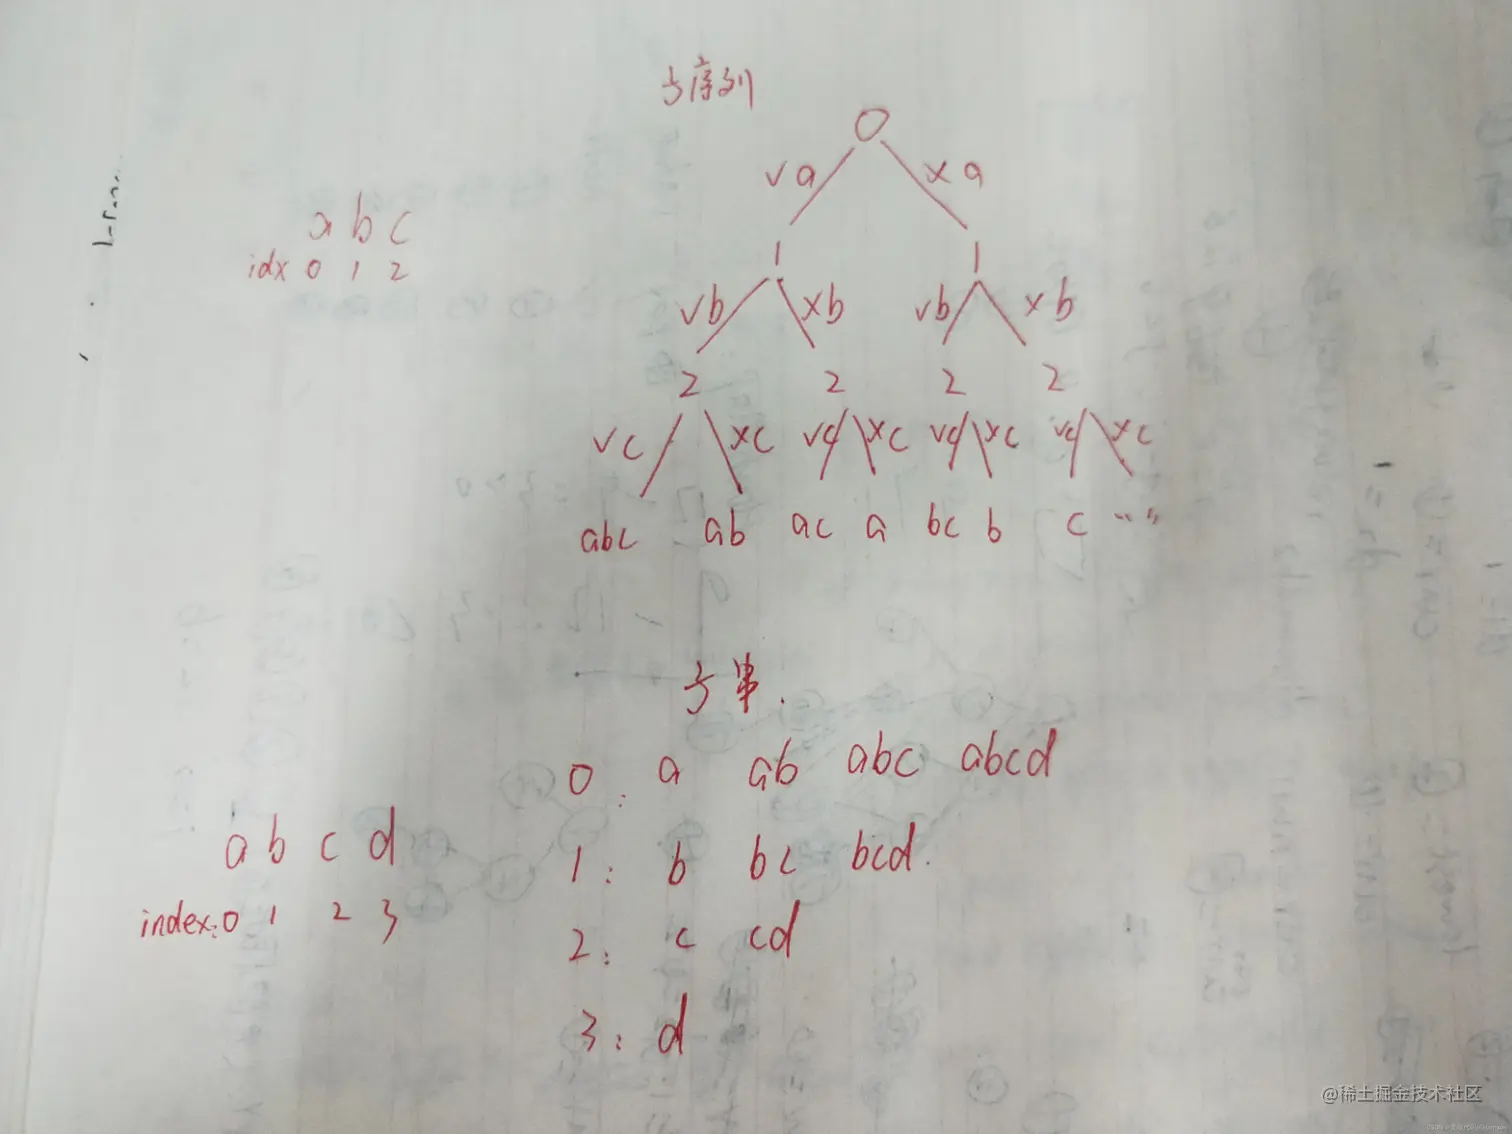 子序列
0
√a ×a
a b c
idx 0 1 2
1 1
√b ×b √b ×b
2 2 2 2
√c ×c √c ×c √c ×c √c ×c
abc ab ac a bc b c “”
子串.
0: a ab abc abcd
a b c d
1: b bc bcd.
index: 0 1 2 3
2: c cd
3: d
@稀土掘金技术社区